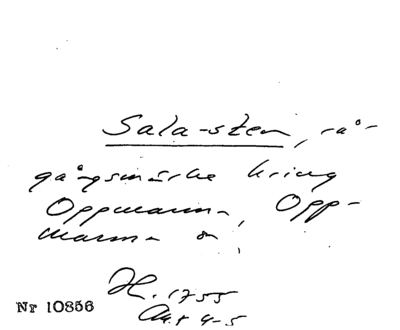 Sala-sten, rå-
gångsmärke kring
Oppmanna, Opp-
manna sn,
H. 1755
Akt 4-5
Nr 10856